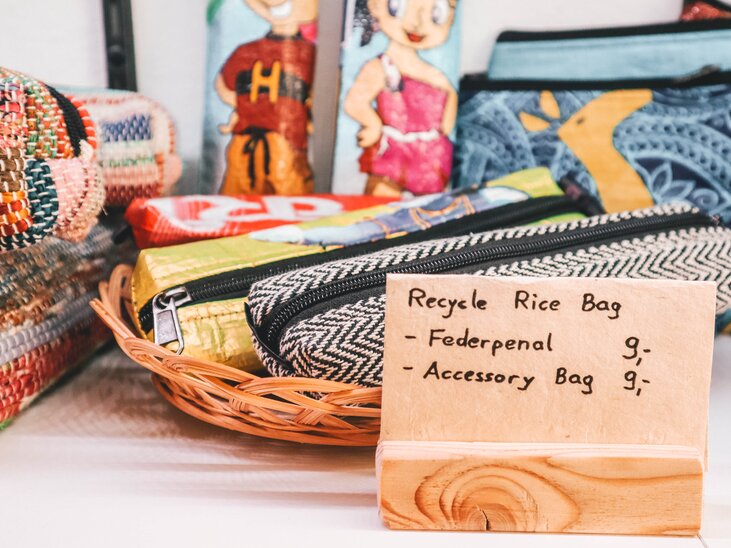 H
Recycle Rice Bag
- Federpenal 9,-
- Accessory Bag 9,-